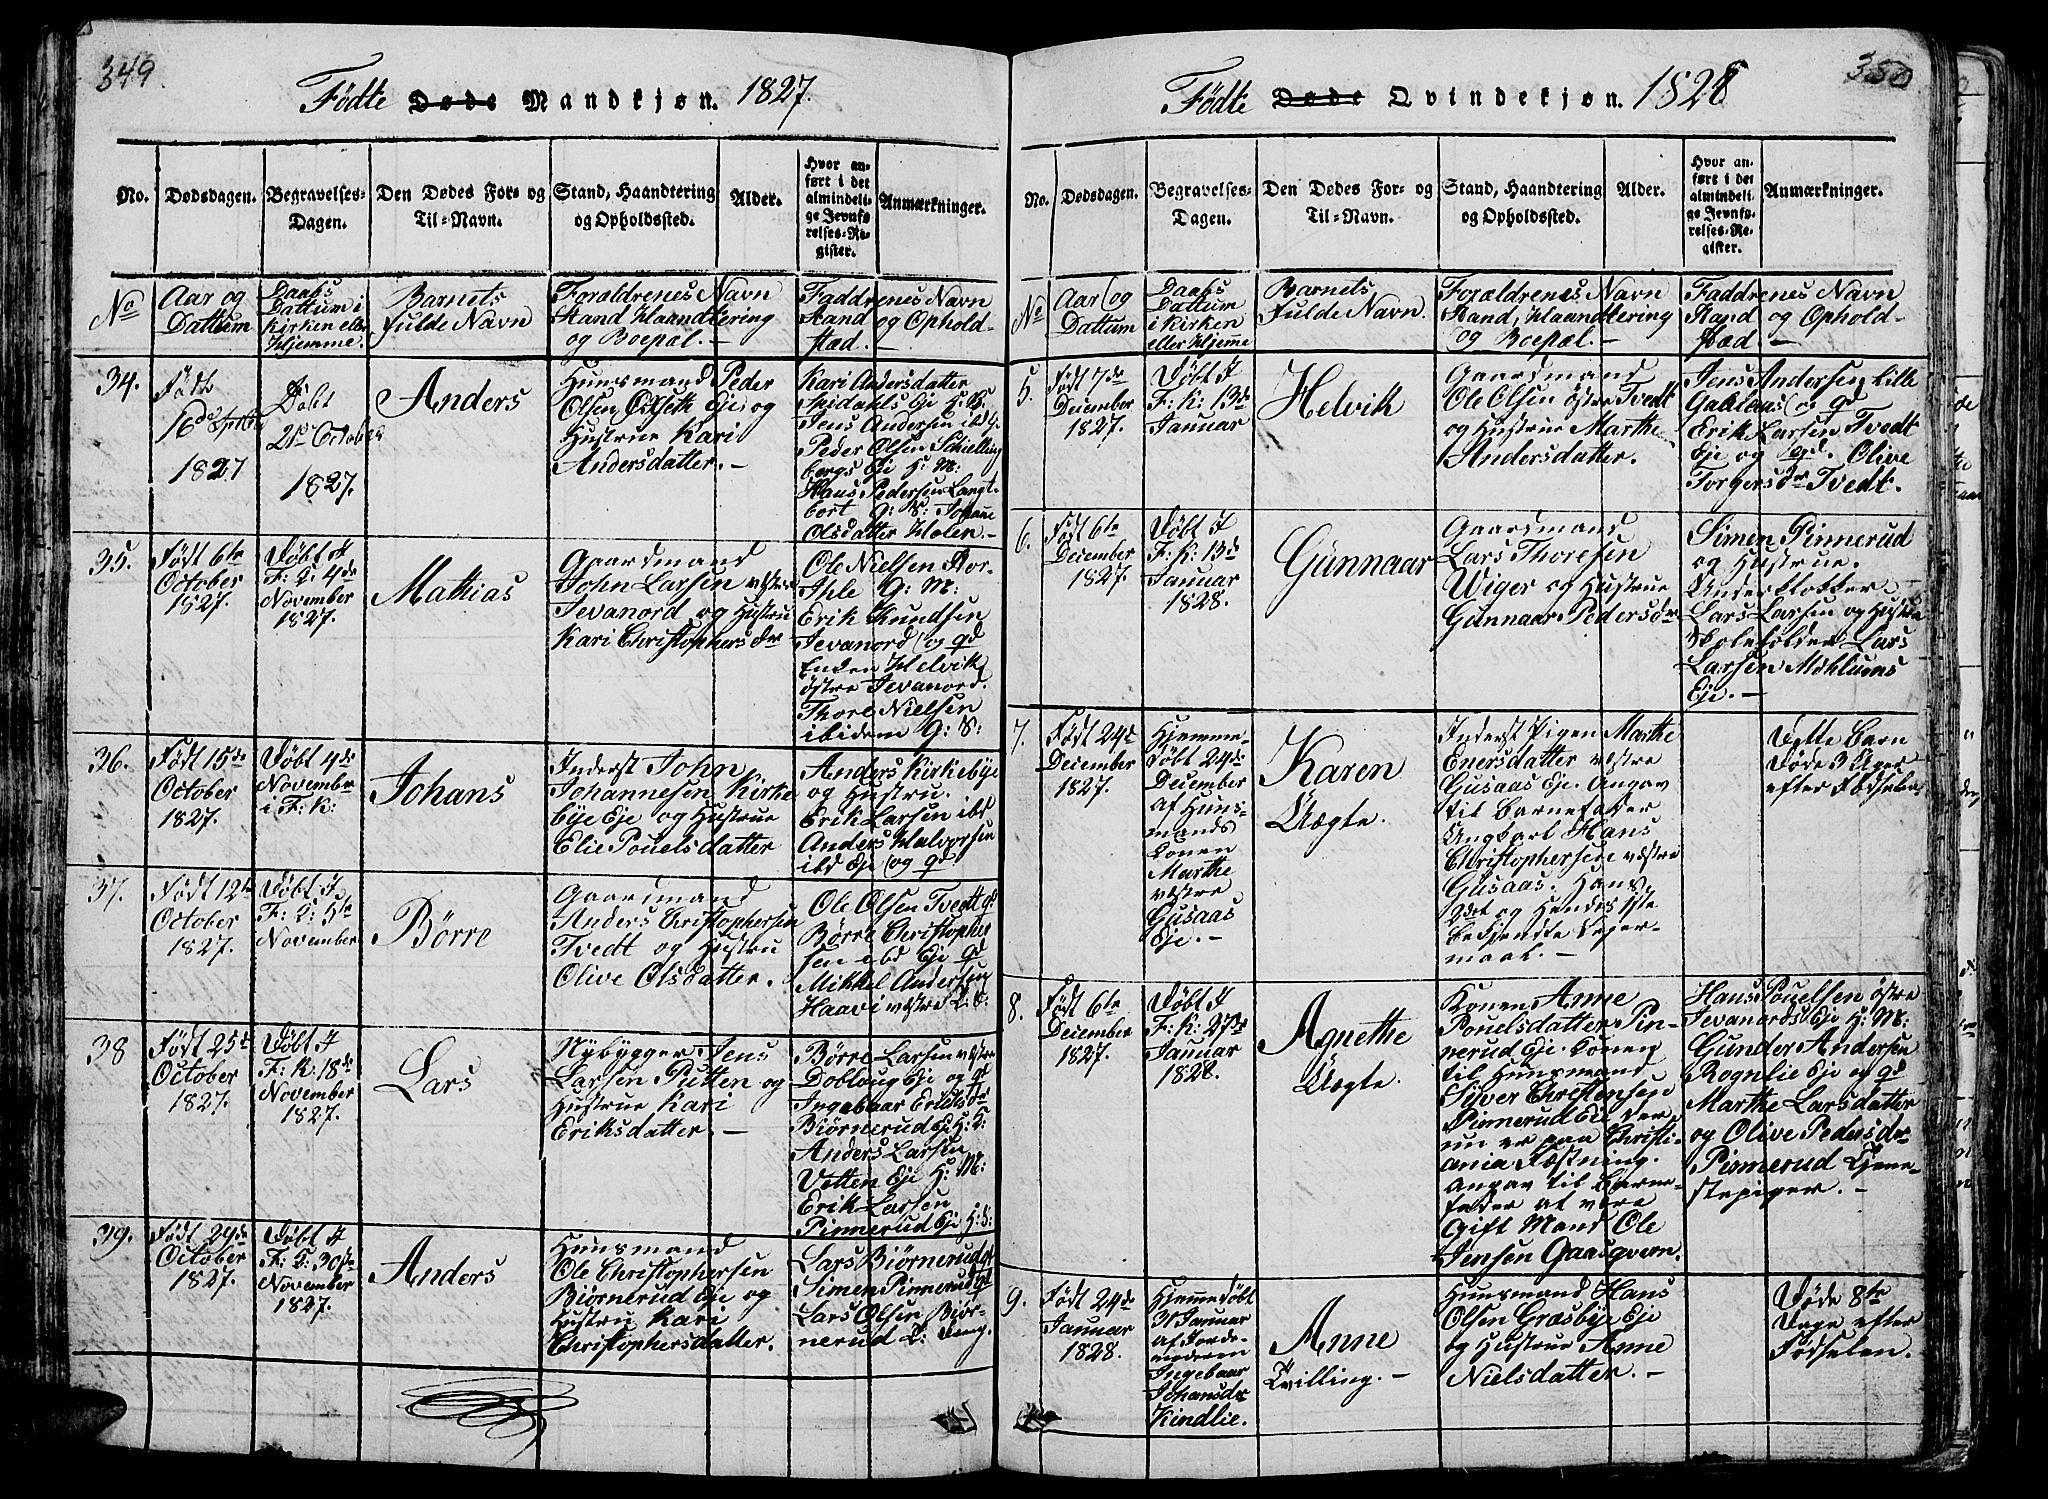 349.
Födte Døde Mandkjøn. 1827.
No.
Dødsdagen.
Begravelses-
Dagen.
Den Dødes For- og
Til-Navn.
Stand, Haandtering
og Opholdssted.
Alder.
Hvor an-
ført i det
almindeli-
ge Jevnfø-
relses-Re-
gister.
Anmærkninger.
No
Aar og
Dattum
Daabs
Dattum i
Kirken eller
Hjemme.
Barnets
fulde Navn
Forældrenes Navn
Stand Haandtering
og Boepæl. –
Faddrenes Navn
Stand og Ophold-
stæd. –
34.
Født
16de
1827
Døbt
21de October
1827.
Anders
Huusmand Peder
Olsen Eje og
Hustrue Kari
Andersdatter. –
Kari Andersdatter
Eje H: K:
Jens Andersen ibd
Peder Olsen Schielling
bergs Eje H: M:
Hans Pedersen Langt-
bort G: S: Johane
Olsdatter Holen –
35.
Født 6te
October
1827.
Døbt I
F: K: 4de
November
1827.
Mathias
Gaardmand
John Larsen væstre
Jevanord og Hustru
Kari Christophersdr
Ole Nielsen Kor-
G: M:
Erik Knudsen
Jevanord og gd
Enken Helvik
østre Jevanord.
Thore Nielsen
ibidem G: S:
36.
Født 15de
October
1827.
Døbt 4de
November
i F: K:
Johans
Inderst John
Johannesen Kirke
bye Eje og Hustrue
Elie Pouelsdatter
Anders Kirkebye
og Hustru.
Erik Larsen ibd
Anders Halvorsen
ibd Eje og gd
37.
Født 12te
October
1827.
Døbt I
F: K: 4te
November
Börre
Gaardmand
Anders Christophersen
Tvedt og Hustru
Olive Olsdatter.
Ole Olsen Tvedt gd
Börre Christopher
sen ibd Eje gd
Mikkel Andersen
Haavi væstre
38
Født 25de
October
1827.
Døbt I
F: K: 18de
November
1827.
Lars
Nybygger Jens
Larsen Putten og
Hustrue Kari
Eriksdatter. –
Børre Larsen væstre
Dobloug Eje og gd
Ingebaar Eriksdr
Biørnerud Eje H: K:
Anders Larsen
Votten Eje H: M:
Erik Larsen
Pinnerud Eje H: S:
39.
Født 29de
October
1827.
Døbt I
F: K: 30te
November
1827.
Anders
Huusmand
Ole Christophersen
Biørnerud Eje og
Hustru Kari
Christophersdatter.
Lars Biørnerud gd
Simen Pinnerud gd
Lars Olsen Biör-
nerud
350
Födte Døde Qvindekjøn. 1828
No.
Dødsdagen.
Begravelses-
Dagen.
Den Dødes For- og
Til-Navn.
Stand, Haandtering
og Opholdssted.
Alder.
Hvor an-
ført i det
almindeli-
ge Jevnfø-
relses-Re-
gister.
Anmærkninger.
No
Aar og
Dattum
Daabs
Dattum
i Kirken
eller Hjemme
Barnets
fulde Navn.
Forældrenes Navn
Stand, Haandtering
og Boepæl. –
Faddrenes Navn
Stand og Ophold-
stæd –
5.
Født 7de
December
1827.
Døbt I
F: K: 13de
Januar
Helvik
Gaardmand
Ole Olsen østre Tvedt
og Hustrue Marthe
Andersdatter.
Jens Andersen lille
og gd
Erik Larsen Tvedt
Eje og gd. Olive
Torgersdr Tvedt.
6.
Født 6te
December
1827.
Døbt I
F: K: 13de
Januar
1828.
Gunnaar
Gaardmand
Lars Thoresen
Wiger og Hustrue
Gunnaar Pedersdr
Simen Pinnerud
og Hustrue.
Underklokker
Lars Larsen og Hustru
Skoleholder Lars
Larsen Mohlums
Eje. –
7.
Født 24de
December
1827.
Hjemme-
døbt 24de
December
af Huus-
mands
Konen
Marthe
væstre
Gusaas
Eje. –
Karen
Uægte.
Inderst Pigen Marthe
Enersdatter væstre
Gusaas Eje. Angav
til Barnefader
Ungkarl Hans
Christophersen væstre
Gusaas. Hans
2det og Hendes 1ste
bekjendte Lejer-
maal. –
Dette Barn
døde 3 Uger
efter Fødselen
8.
Født 6te
December
1827.
Døbt I
F: K: 27de
Januar
1828.
Agnethe
Uægte.
Konen Anne
Pouelsdatter Pin-
nerud Eje. Konen
til Huusmand
Syver Christensen
Pinnerud Eje der
nu er paa Christi-
ania Fæstning.
Angav til Barne-
fader at være
Gift Mand Ole
Jensen Gaasqvern.
Hans Pouelsen østre
Jevanords Eje H: M:
Gunder Andersen
Rognlie Eje og gd
Marthe Larsdatter
og Olive Pedersdr
Pinnerud Tjene-
stepiger. –
9.
Født 24de
Januar
1828.
Hjemmedøbt
31 Januar
af Jorde-
moderen
Ingebaar
Johansdr
Kindlie.
Anne
Tvilling. –
Huusmand Hans
Olsen Græsbye Eje
og Hustrue Anne
Nielsdatter. –
Døde 8te
Dage efter
Fødselen.